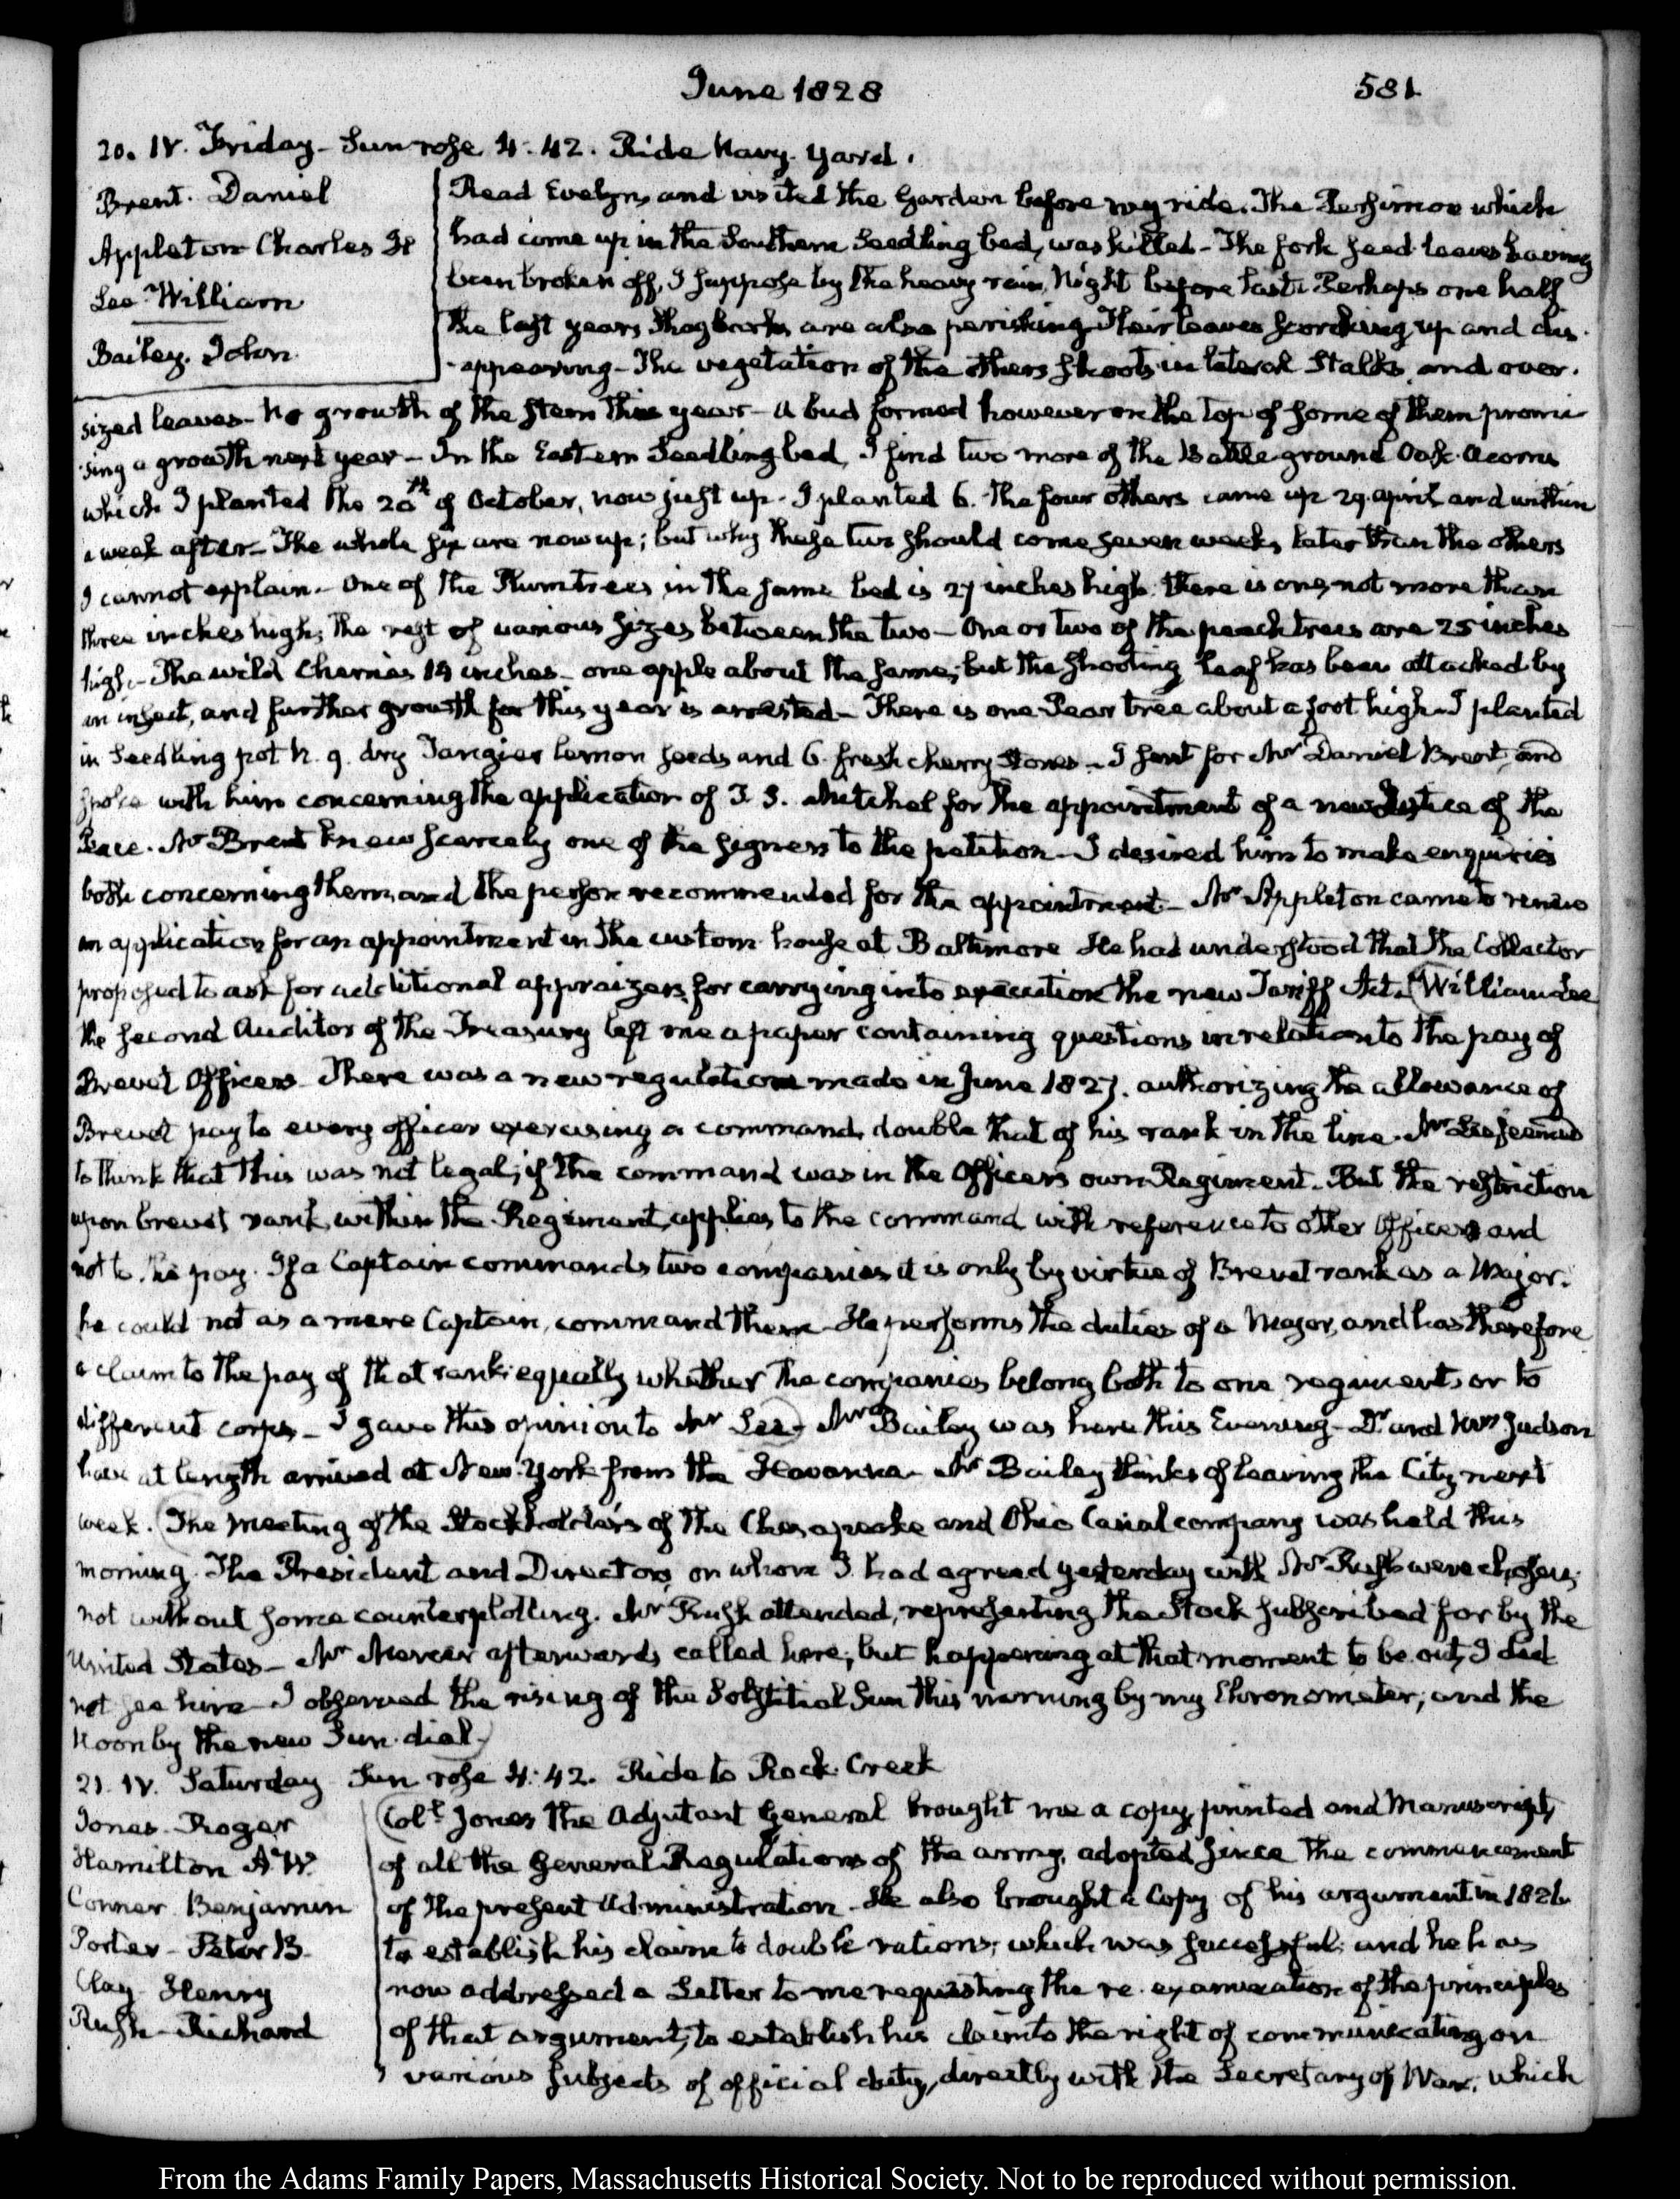 June 1828
581
20. IV. Friday - Sun rose 4:42. Ride Navy-Yard.
Brent. Daniel
Appleton Charles H
Lee William
Bailey. John
Read Evelyn, and visited the Garden before my ride. The Persimon which
had come up in the Southern Seedling bed, was killed - The fork seed leaves having
been broken off, I suppose by the heavy rain, Night before last. Perhaps one half
the last years Shagbarks are also perishing. Their leaves scorching up and dis-
-appearing - The vegetation of the others shoots in lateral Stalks, and over-
sized leaves - No growth of the stem this year - A bud formed however on the top of some of them promi-
-sing a growth next year - In the Eastern Seedling bed, I find two more of the Battle ground Oak-Acorns
which I planted the 20th of October, now just up - I planted 6. The four others came up 29. April and within
a week after - The whole six are now up; but why these two should come seven weeks later than the others
I cannot explain - One of the Plumtrees in the same bed is 27 inches high. there is one, not more than
three inches high; the rest of various sizes between the two - One or two of the peach trees are 25 inches
high - The wild Cherries 19 inches - one apple about the same; but the shooting leaf has been attacked by
an insect, and further growth for this year is arrested - There is one Pear tree about a foot high - I planted
in Seedling pot N. 9. dry Tangier lemon seeds and 6. fresh cherry Stones - I sent for Mr Daniel Brent, and
spoke with him concerning the application of J. S. Mitchel for the appointment of a new Justice of the
Peace. Mr Brent knew scarcely one of the signers to the petition - I desired him to make enquiries
both concerning them, and the person recommended for the appointment - Mr Appleton came to renew
an application for an appointment in the custom-house at Baltimore He had understood that the Collector
proposed to ask for additional appraizers for carrying into execution the new Tariff Act. (William Lee
the second Auditor of the Treasury left me a paper containing questions in relation to the pay of
Brevet Officers. There was a new regulation made in June 1827. authorizing the allowance of
Brevet pay to every officer exercising a command, double that of his rank in the line. Mr Lee seemed
to think that this was not legal; if the command was in the Officers own Regiment. But the restriction
upon brevet rank within the Regiment, applies to the command with reference to other Officers and
not to the pay. If a Captain commands two companies it is only by virtue of Brevet rank as a Major.
he could not as a mere Captain, command them - He performs the duties of a Major, and has therefore
a claim to the pay of that rank equally whether the companies belong both to one regiment, or to
different corps - I gave this opinion to Mr Lee) - Mr Bailey was here this Evening - Dr and Mrs Judson
have at length arrived at New-York from the Havanna - Mr Bailey thinks of leaving the City next
week. (The Meeting of the Stockholders of the Chesapeake and Ohio Canal company was held this
morning. The President and Directors, on whom I had agreed yesterday with Mr Rush were chosen;
not without some counterplotting. Mr Rush attended, representing the Stock subscribed for by the
United States - Mr Mercer afterwards called here; but happening at that moment to be out, I did
not see him - I observed the rising of the Solstitial Sun this morning by my Chronometer; and the
Noon by the new Sun-dial.)
21. IV. Saturday Sun rose 4:42. Ride to Rock-Creek
Jones Roger
Hamilton A W.
Conner Benjamin
Porter - Peter B.
Clay Henry
Rush - Richard
(Coll Jones the Adjutant General brought me a copy, printed and Manuscript,
of all the General Regulations of the army, adopted since the commencement
of the present Administration - He also brought a Copy of his argument in 1826
to establish his claim to double rations; which was successful; and he has
now addressed a Letter to me requesting the re-examination of the principles
of that argument, to establish his claim to the right of communicating on
various subjects of official duty, directly with the Secretary of War; which
From the Adams Family Papers, Massachusetts Historical Society. Not to be reproduced without permission.